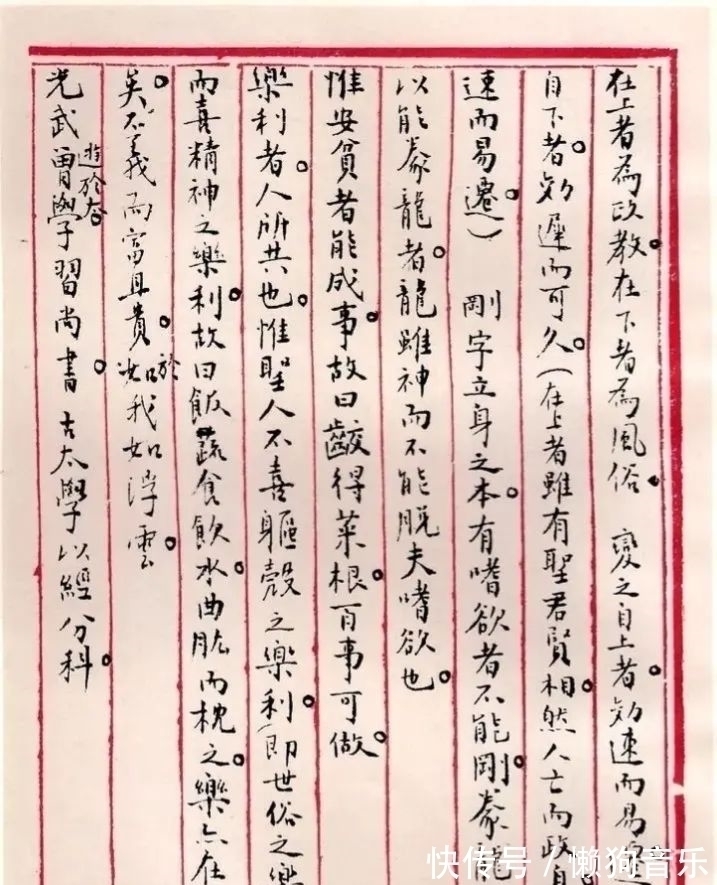 在上者為政教。在下者為風俗。 變之自上者。効速而易
自下者。効遲而可久。(在上者雖有聖君賢相。然人亡而政
速而易遷。) 剛字立身之本。有嗜欲者不能剛。豢龍
以能豢龍者。龍雖神而不能脫夫嗜欲也。
惟安貧者能成事。故曰齩得菜根。百事可做。
樂利者。人所共也。惟聖人不喜軀殼之樂利。(即世俗之樂
而喜精神之樂利。故曰飯蔬食飲水。曲肱而枕之。樂亦在
矣。不義而富且貴。於我如浮雲。
光武曾遊於太學習尚書。古太學以經分科。
快传号/懒狗音乐